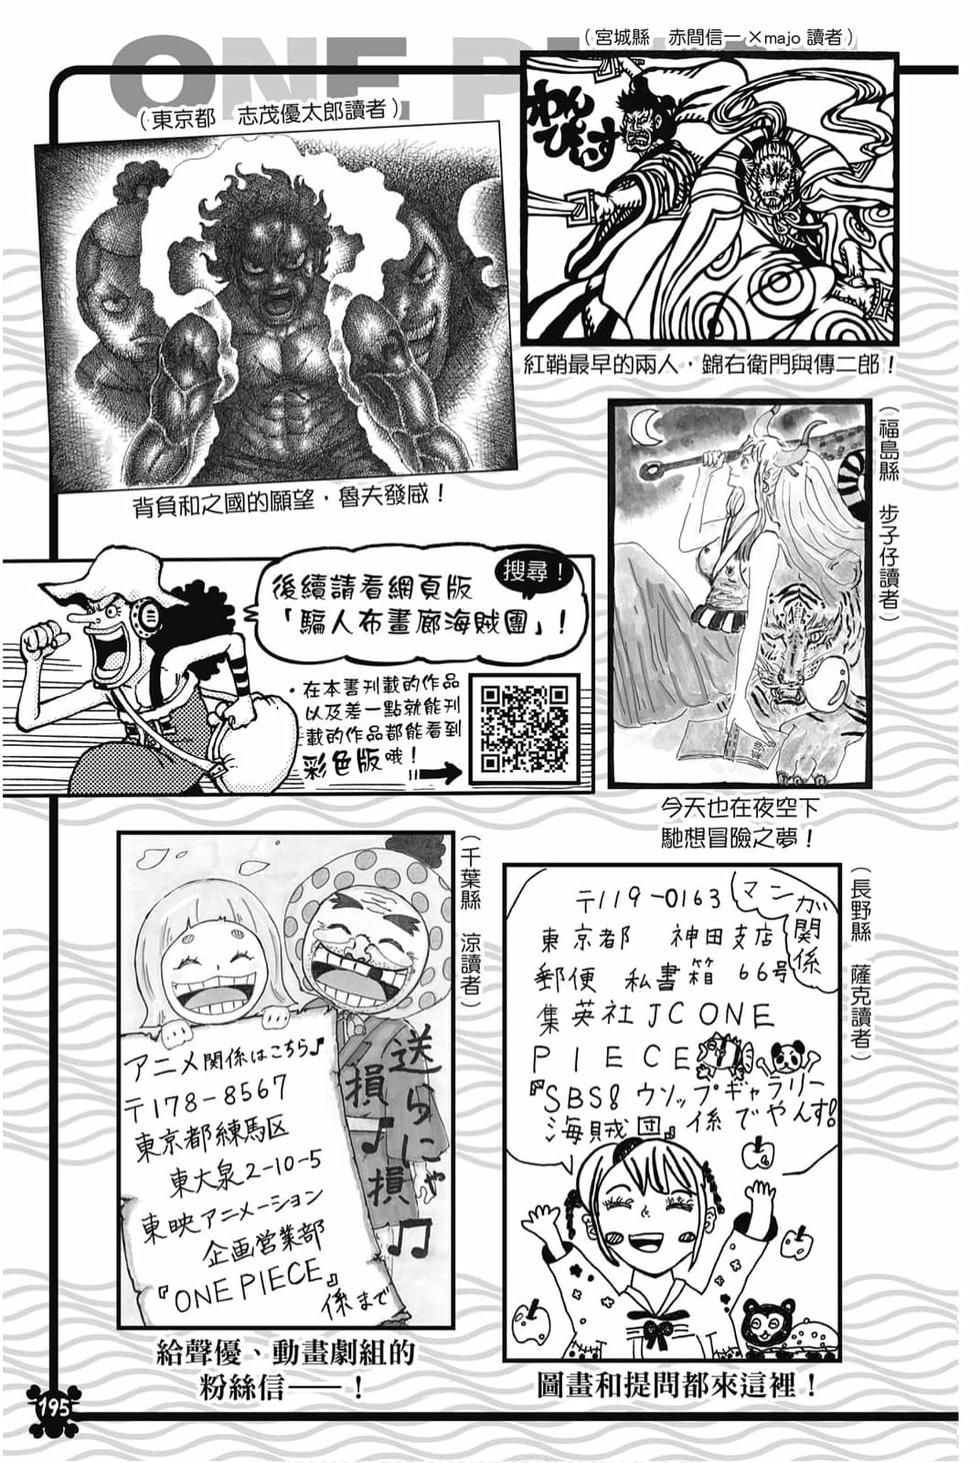 ONE PIECE
（宮城縣　赤間信一×majo 讀者）
わんぴいす
紅鞘最早的兩人，錦右衛門與傳二郎！
（東京都　志茂優太郎讀者）
背負和之國的願望，魯夫發威！
（福島縣　步子仔讀者）
今天也在夜空下
馳想冒險之夢！
搜尋！
後續請看網頁版
「騙人布畫廊海賊團」！
・在本書刊載的作品
以及差一點就能刊
載的作品都能看到
彩色版哦！
（千葉縣　涼讀者）
アニメ関係はこちら♪
〒178-8567
東京都練馬区
東大泉2-10-5
東映アニメーション
企画営業部
『ONE PIECE』
係まで
送らにゃ
損♪損♫
給聲優、動畫劇組的
粉絲信——！
（長野縣　薩克讀者）
マンガ関係
〒119-0163
東京都　神田支店
郵便　私書箱　66号
集英社JC ONE
PIECE
『SBS!ウソップギャラリー
海賊団』係でやんす!
圖畫和提問都來這裡！
195